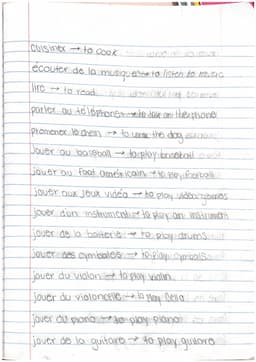 cuisiner → to cook
écouter de la musique → to listen to music
lire → to read
parler au téléphone → to talk on the phone
promener le chien → to walk the dog
jouer au baseball → to play baseball
jouer au foot américain → to play football
jouer aux jeux vidéo → to play video games
jouer d'un instrument → to play an instrument
jouer de la batterie → to play drums
jouer des cymbales → to play cymbals
jouer du violon → to play violin
jouer du violoncelle → to play cello
jouer du piano → to play piano
jouer de la guitare → to play guitare